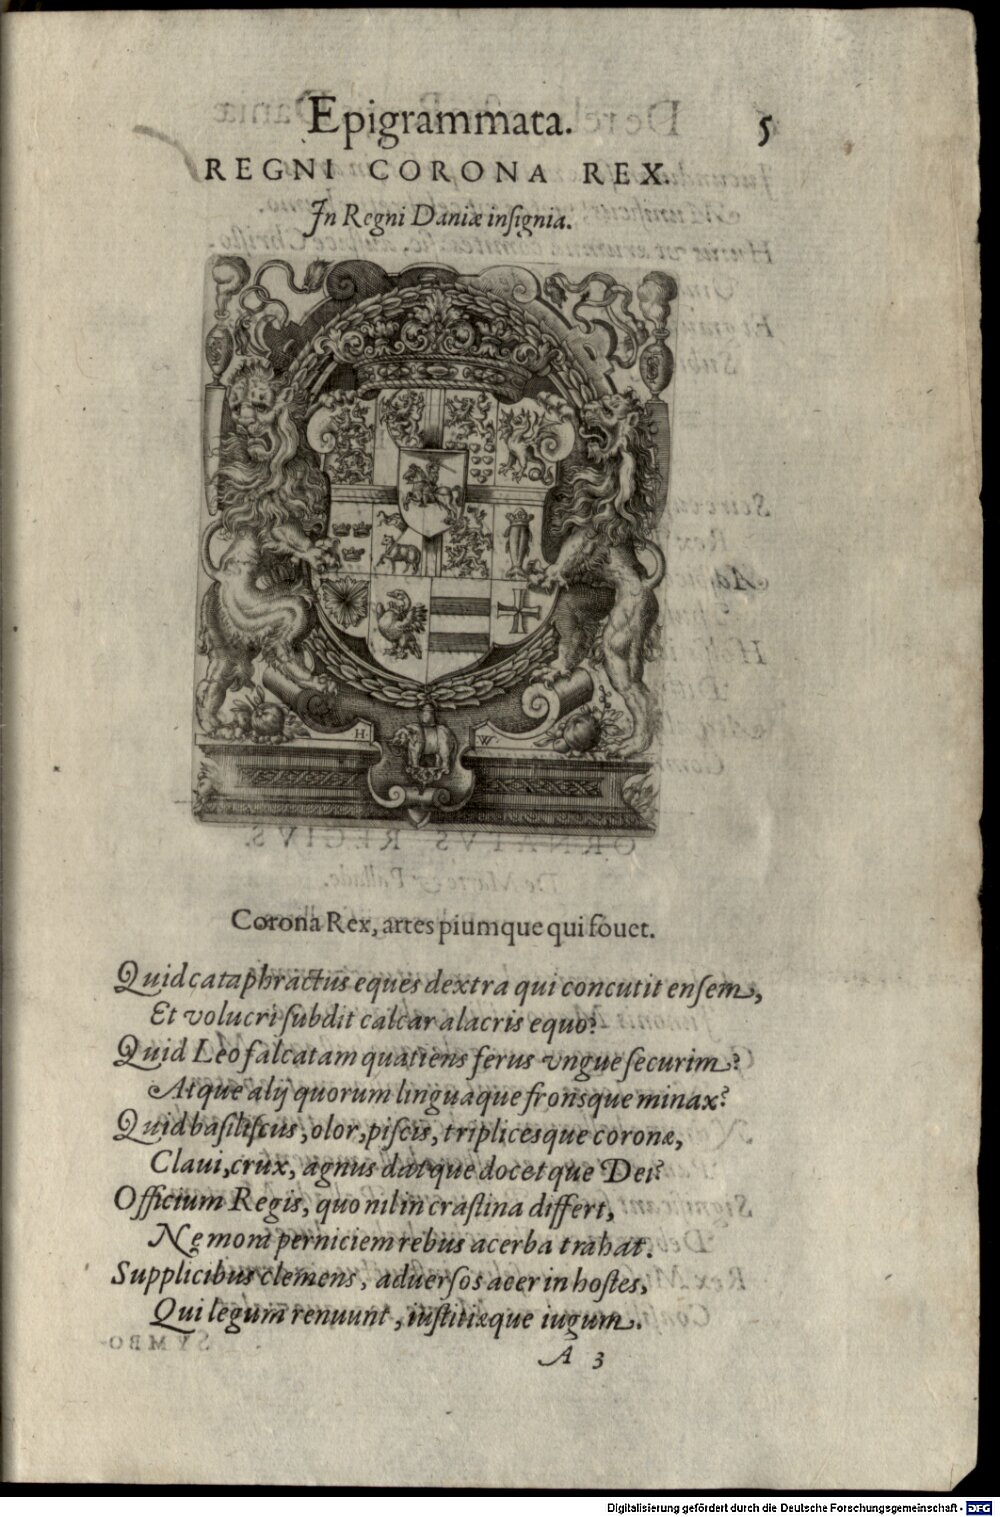 Epigrammata. 5
REGNI CORONA REX.
In Regni Daniæ inſignia.
H. W.
Corona Rex, artes piumque qui fouet.
Quid cataphractus eques dextra qui concutit enſem,
Et volucri ſubdit calcar alacris equo?
Quid Leo falcatam quatiens ferus vngue ſecurim?
Atque alij quorum linguaque fronsque minax?
Quid baſiliſcus, olor, piſcis, triplicesque coronæ,
Claui, crux, agnus datque docetque Dei?
Officium Regis, quo nil in craſtina differt,
Ne mora perniciem rebus acerba trahat.
Supplicibus clemens, aduerſos acer in hoſtes,
Qui legum renuunt, iuſtitiæque iugum.
A 3
Digitalisierung gefördert durch die Deutsche Forschungsgemeinschaft - DFG